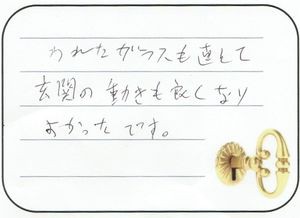 われたガラスも直して
玄関の動きも良くなり
よかったです。